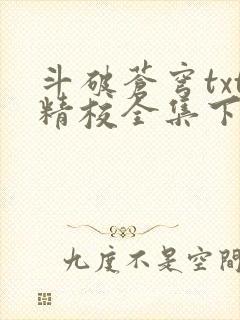 斗破蒼穹txt
精校全集下
九度不是空間